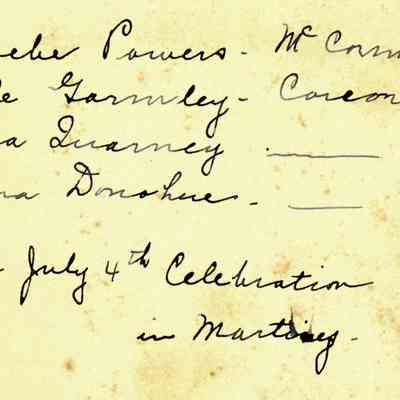 ebe Powers - McCorm
e Gormley - Corcor
a Quarney ____
na Donohue - ____
July 4th Celebration
in Martinez -